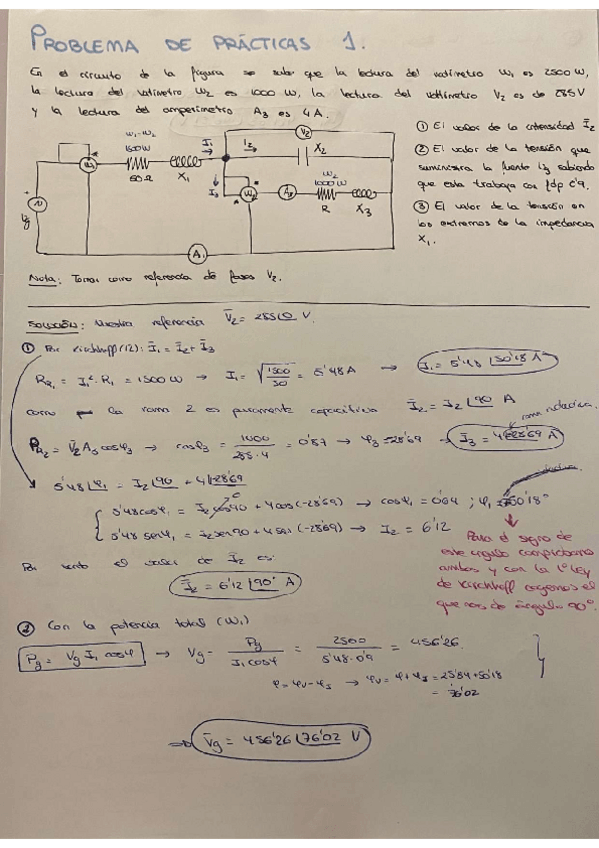 PROBLEMA DE PRÁCTICAS 1.
En el circuito de la figura se sabe que la lectura del vatímetro W1 es 2500 W,
la lectura del vatímetro W2 es 1000 W, la lectura del voltímetro V2 es de 285 V
y la lectura del amperímetro A3 es 4 A.
① El valor de la intensidad I2
② El valor de la tensión que
suministra la fuente Ug sabiendo
que esta trabaja con fdp 0'9.
③ El valor de la tensión en
los extremos de la impedancia
X1.
W1-W2
1500W
50Ω
X1
I1
I2
I3
V2
X2
W1
W2
A3
W2
1000 W
R
X3
A1
Ug
Nota: Tomar como referencia de fases V2.
SOLUCIÓN: Nuestra referencia V̄2 = 285∠0 V.
① Por Kirchhoff (1ª): Ī1 = Ī2 + Ī3
PR1 = I1²·R1 = 1500 W → I1 = √(1500/50) = 5'48 A → Ī1 = 5'48 ∠50'18 A
como la rama 2 es puramente capacitiva Ī2 = I2 ∠90 A
rama inductiva.
PR2 = V2 A3 cosφ3 → cosφ3 = 1000/(285·4) = 0'87 → φ3 = -28'69 → Ī3 = 4∠-28'69 A
5'48∠φ1 = I2∠90 + 4∠-28'69
5'48 cosφ1 = I2 cos90 + 4 cos(-28'69) → cosφ1 = 0'64 ; φ1 = 50'18°
5'48 senφ1 = I2 sen90 + 4 sen(-28'69) → I2 = 6'12
Por tanto el valor de Ī2 es:
Ī2 = 6'12 ∠90° A
Para el signo de
este ángulo comprobamos
ambos y con la 1ª Ley
de Kirchhoff cogemos el
que nos de ángulo 90°.
② Con la potencia total (W1)
Pg = Vg I1 cosφ → Vg = Pg/(I1 cosφ) = 2500/(5'48·0'9) = 456'26
φ = φV - φI → φV = φ + φI = 25'84 + 50'18
= 76'02
⇒ V̄g = 456'26 ∠76'02 V